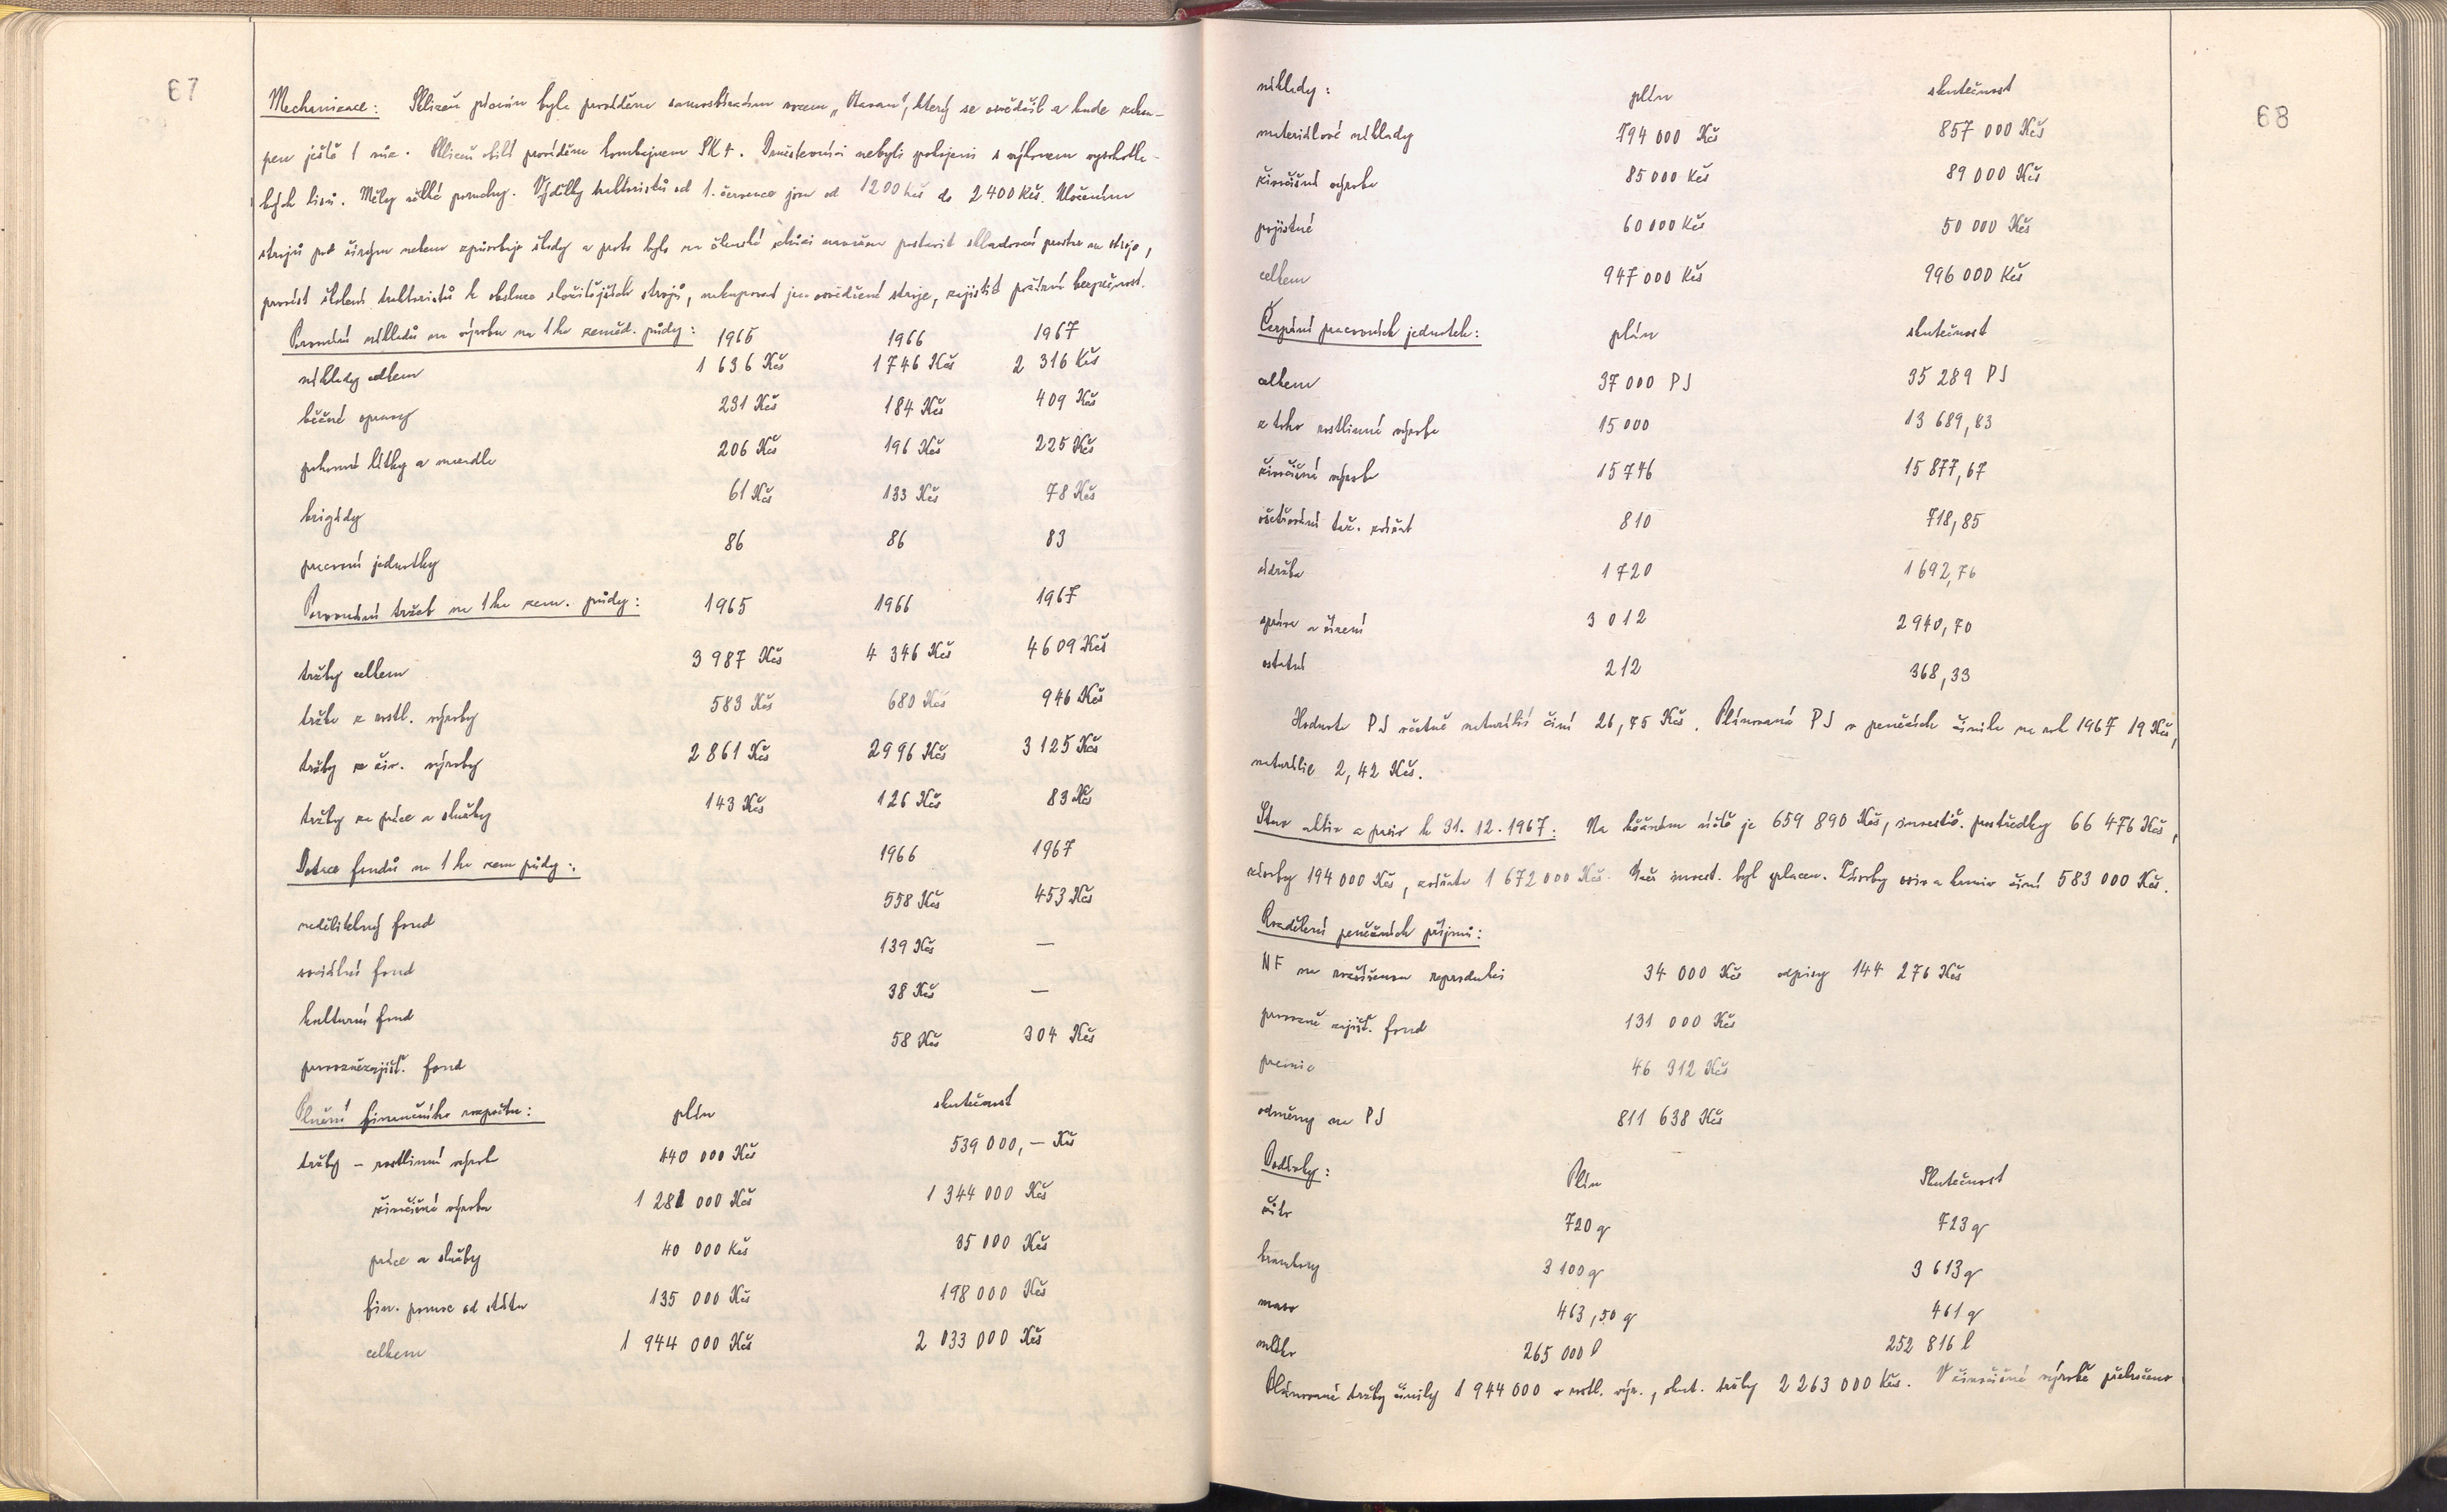 67
Mechanizace: Sklizeň pícnin byla prováděna samosběracím vozem „Horal", který se osvědčil a bude zakou-
pen ještě 1 vůz. Sklizeň obilí prováděna kombajnem SK 4. Družstevníci nebyli spokojeni s výkonem vysokotla-
kých lisů. Měly velké poruchy. Výdělky traktoristů od 1. července jsou od 1200 Kčs do 2 400 Kčs. Uložením
strojů pod širým nebem způsobuje škody a proto bylo na členské schůzi usneseno postavit skladovací prostor na stroje,
provést školení traktoristů k obsluze složitějších strojů, nakupovat jen osvědčené stroje, zajistit požární bezpečnost.
Porovnání nákladů na výrobu na 1 ha zeměd. půdy: 1965 1966 1967
náklady celkem 1 636 Kčs 1 746 Kčs 2 316 Kčs
běžné opravy 231 Kčs 184 Kčs 409 Kčs
pohonné látky a mazadla 206 Kčs 196 Kčs 225 Kčs
brigády 61 Kčs 133 Kčs 78 Kčs
pracovní jednotky 86 86 83
Porovnání tržeb na 1 ha zem. půdy: 1965 1966 1967
tržby celkem 3 987 Kčs 4 346 Kčs 4 609 Kčs
tržba z rostl. výroby 583 Kčs 680 Kčs 946 Kčs
tržby ze živ. výroby 2 861 Kčs 2 996 Kčs 3 125 Kčs
tržby za práce a služby 143 Kčs 126 Kčs 83 Kčs
Dotace fondů na 1 ha zem půdy: 1966 1967
nedělitelný fond 558 Kčs 453 Kčs
sociální fond 139 Kčs —
kulturní fond 38 Kčs —
provozně zajišť. fond 58 Kčs 304 Kčs
Plnění finančního rozpočtu: plán skutečnost
tržby - rostlinná výroba 440 000 Kčs 539 000,— Kčs
živočišná výroba 1 281 000 Kčs 1 344 000 Kčs
práce a služby 40 000 Kčs 35 000 Kčs
fin. pomoc od státu 135 000 Kčs 198 000 Kčs
celkem 1 944 000 Kčs 2 033 000 Kčs
68
náklady: plán skutečnost
materiálové náklady 794 000 Kčs 857 000 Kčs
živočišná výroba 85 000 Kčs 89 000 Kčs
pojistné 60 000 Kčs 50 000 Kčs
celkem 947 000 Kčs 996 000 Kčs
Čerpání pracovních jednotek: plán skutečnost
celkem 37 000 PJ 35 289 PJ
z toho rostlinná výroba 15 000 13 689,83
živočišná výroba 15 746 15 877,67
ošetřování taž. zvířat 810 718,85
údržba 1 720 1 692,76
správa a řízení 3 012 2 940,70
ostatní 212 368,33
Hodnota PJ včetně naturálií činí 26,75 Kčs. Plánovaná PJ v penězích činila na rok 1967 19 Kčs,
naturálie 2,42 Kčs.
Stav aktiv a pasiv k 31. 12. 1967: Na běžném účtě je 659 890 Kčs, investič. prostředky 66 476 Kčs,
zásoby 194 000 Kčs, zvířata 1 672 000 Kčs. Úvěr invest. byl splacen. Zásoby osiv a krmiv činí 583 000 Kčs.
Rozdělení peněžních příjmů:
NF na rozšířenou reprodukci 34 000 Kčs odpisy 144 276 Kčs
provozně zajišť. fond 131 000 Kčs
premie 46 312 Kčs
odměny na PJ 811 638 Kčs
Dodávky: Plán Skutečnost
žito 720 q 723 q
brambory 3 100 q 3 613 q
maso 463,50 q 461 q
mléko 265 000 l 252 816 l
Plánované tržby činily 1 944 000 v rostl. výr., skut. tržby 2 263 000 Kčs. V živočišné výrobě překročeno